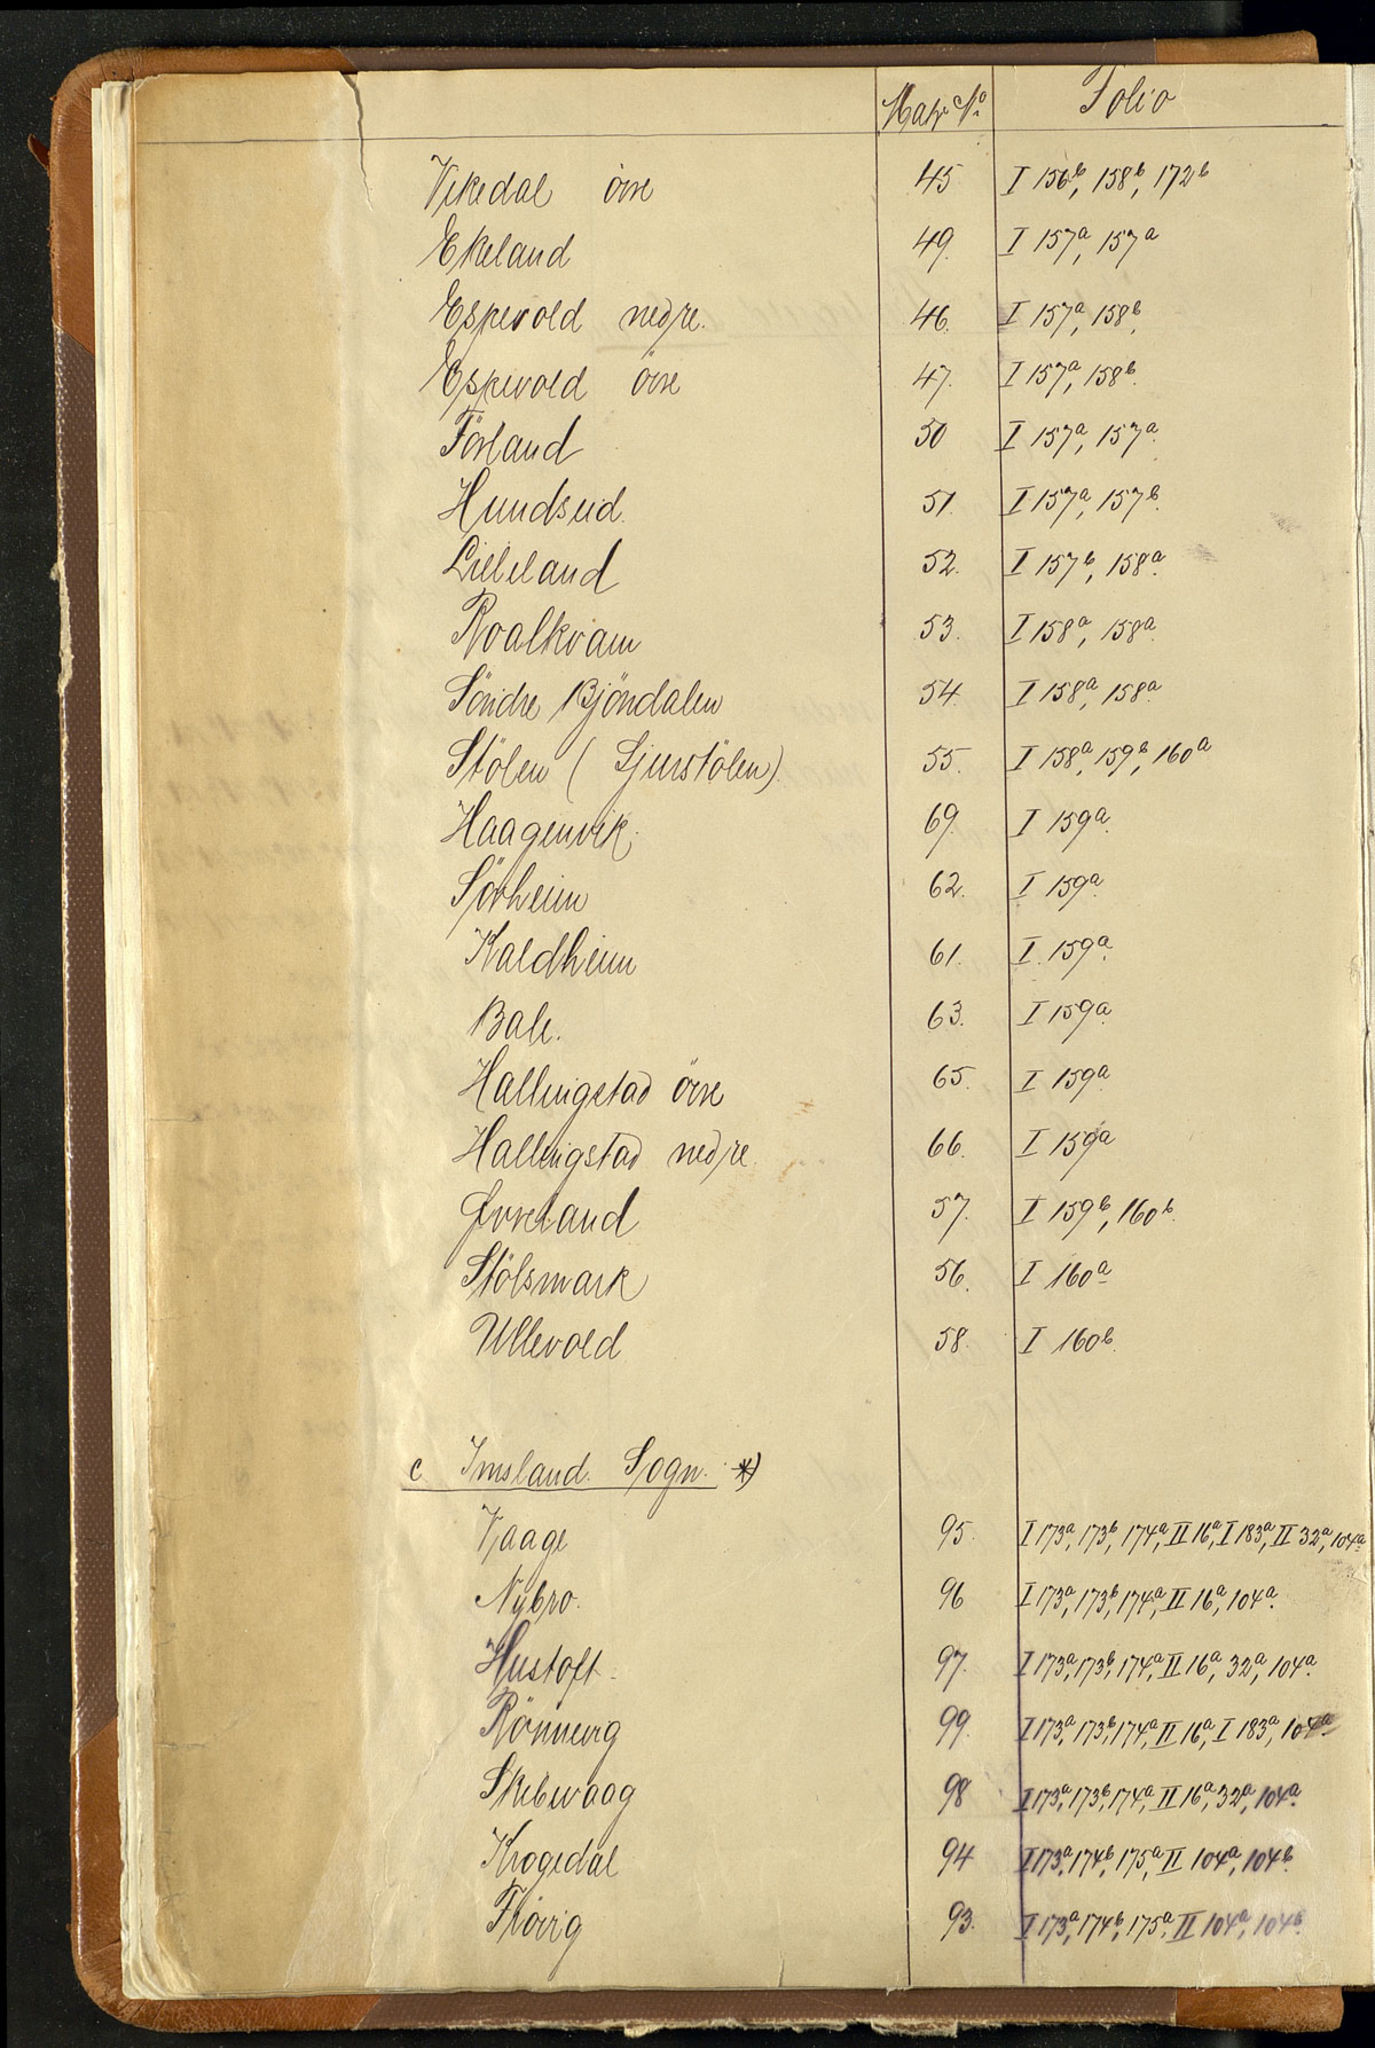 Matr No Folio
Vikedal övre 45 I 156b, 158b, 172b
Ekeland 49. I 157a, 157a
Espevold nedre. 46. I 157a, 158b.
Espevold övre 47. I 157a, 158b.
Förland 50 I 157a, 157a.
Hundseid. 51. I 157a, 157b.
Lilleland 52. I 157b, 158a.
Roalkvam 53. I 158a, 158a.
Söndre Bjöndalen 54. I 158a, 158a.
Stölen (Sjurstölen). 55. I 158a, 159b, 160a
Haagenvik. 69. I 159a.
Sörheim 62. I 159a.
Kaldheim 61. I. 159a.
Bale. 63. I 159a.
Hallingstad övre 65. I 159a.
Hallingstad nedre. 66. I 159a
Øvreland 57. I 159b, 160b.
Stölsmark 56. I 160a
Ullevold 58. I 160b.
c Imsland. Sogn. *)
Vaage 95. I 173a, 173b, 174a, II 16a, I 183a, II 32a, 104a.
Nybro. 96 I 173a, 173b, 174a, II 16a, 104a.
Hustoft. 97. I 173a, 173b, 174a, II 16a, 32a, 104a.
Rönnevig 99. I 173a, 173b, 174a, II 16a, I 183a, 104a
Skibevaag 98 I 173a, 173b, 174a, II 16a, 32a, 104a.
Krogedal 94 I 173a, 174b, 175a, II 104a, 104b.
93. I 173a, 174b, 175a, II 104a, 104b.